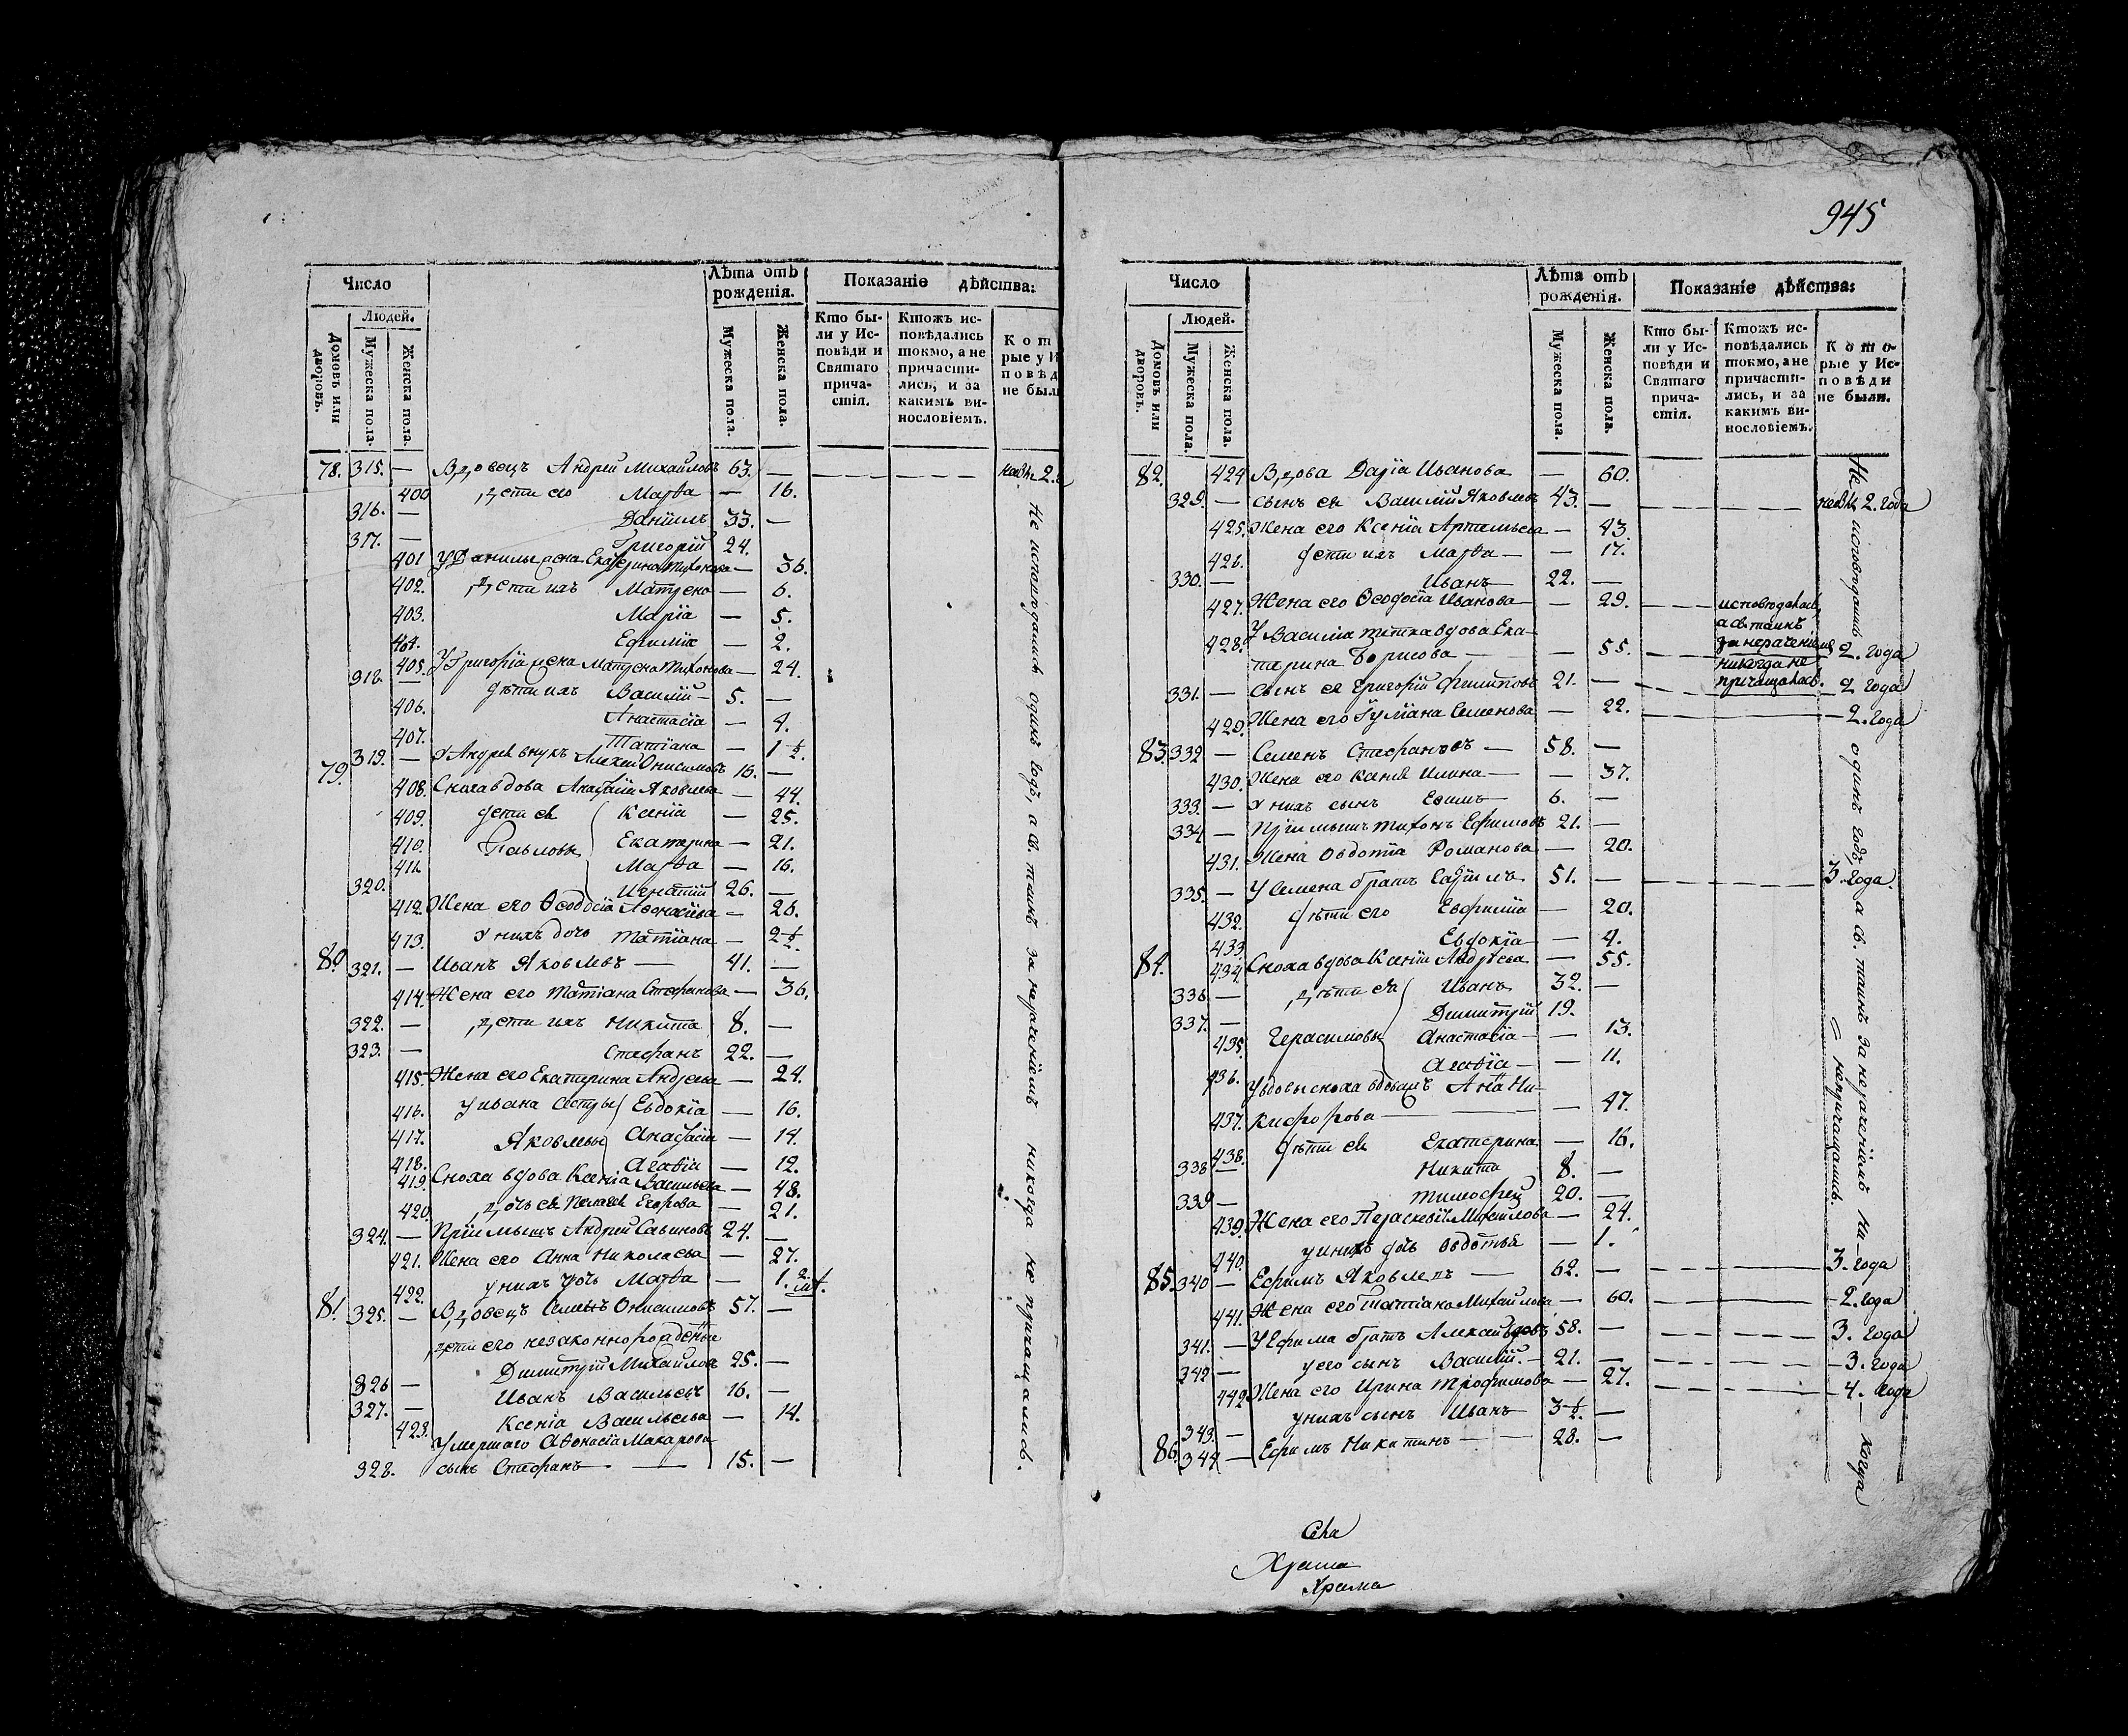 945
Число
Лѣта отъ рожденія.
Показаніе дѣйства:
Людей.
Домовъ или дворовъ.
Мужеска пола.
Женска пола.
Мужеска пола.
Женска пола.
Кто были у Исповѣди и Святаго причастія.
Ктожъ исповѣдались токмо, а не причастились, и за какимъ винословіемъ.
Кот
рые у И
повѣд
не был
78. 315. — Вдовецъ Андрей Михайловъ 63. —
400 дети его Марѳа — 16.
316. — Даніилъ 33. —
317. — Григорій 24.
401 У Данилы жена Екатерина Тихонова — 36.
402. дети ихъ Матрена — 6.
403. Марія — 5.
404. Ефимія — 2.
405. У Григорія жена Матрена Тихонова — 24.
318. — дѣти ихъ Василій — 5. —
406. Анастасія — 4.
407. Татіана — 1 ½.
79. 319. — У Андрея внукъ Алексей Онисимовъ 16. —
408. Сноха вдова Анастасія Яковлева — 44.
409. дети ея Ксенія — 25.
410. Павловы Екатерина — 21.
411. Марѳа — 16.
320. Игнатій 26. —
412. Жена его Ѳеодосія Аѳонасіева — 26.
413. У нихъ дочь Татіана — 2 ½.
80. 321. — Иванъ Яковлевъ — 41. —
414. Жена его Татіана Стефанова — 36.
322. — дети ихъ Никита 8. —
323. — Стефанъ 22. —
415. Жена его Екатерина Андреева — 24.
416. У ивана сестры Евдокія — 16.
417. Яковлевы Анастасія — 14.
418. Агафія — 12.
419. Сноха вдова Ксенія Васильева — 48.
420. дочь ея Пелагея Егорова — 21.
324. — Пріимышъ Андрей Савиновъ 24. —
421. Жена его Анна Николаева — 27.
422. у нихъ дочь Марѳа — 1.
81. 325. — Вдовецъ Семенъ Онисимовъ 57. —
дети его незаконнорожденные
326 — Димитрій Михайловъ 25. —
327. — Иванъ Васильевъ 16. —
423. Ксенія Васильева — 14.
Умершаго Аѳонасія Макарова
328. сынъ Стефанъ — 15. —
Не исповѣдались одинъ годъ, а св. таинъ за нераченіемъ никогда не причащались.
Число
Лѣта отъ рожденія.
Показаніе дѣйства:
Людей.
Домовъ или дворовъ.
Мужеска пола.
Женска пола.
Мужеска пола.
Женска пола.
Кто были у Исповѣди и Святаго причастія.
Ктожъ исповѣдались токмо, а не причастились, и за какимъ винословіемъ.
Которые у Исповѣди не были.
82. 424 Вдова Дарія Иванова — 60.
329. — сынъ ея Василій Яковлевъ 43. — 2. года
425. Жена его Ксенія Артемьева — 43.
426. дети ихъ Марѳа — 17.
330. — Иванъ 22. —
427. Жена его Ѳеодосія Иванова — 29. исповѣдалась, а св таинъ за нераченіемъ никогда не причащалась.
428. У Василія тетка вдова Екатерина Борисова — 55. 2. года
331. — сынъ ея Григорій Филиповъ 21. — 2 года
429. Жена его Гуліана Семенова — 22. 2. года
83. 332 — Семенъ Стефановъ — 58. —
430. Жена его Ксенія Илина — 37.
333. — У нихъ сынъ Ефимъ 6. —
334 — Пріимышъ Тихонъ Ефимовъ 21. —
431. Жена Овдотіа Романова — 20.
335. — У Семена братъ Гавріилъ 51. — 3. года
432. дѣти его Евфимія — 20.
433. Евдокія — 4.
84. 434. Сноха вдова Ксенія Андреева — 55.
336 — дѣти ея Иванъ 32. —
337. — Димитрій 19.
435. Герасимовы Анастасія — 13.
436. Агафія — 11.
437. У вдовы сноха вдовашъ Анна Никифорова — 47.
438. дѣти ея Екатерина — 16.
338 — Никита 8. —
339 — Тимофей 20. —
439. Жена его Параскевія Михаилова — 24.
440. у нихъ дочь Овдотья — 1.
85. 340 — Ефимъ Яковлевъ 62. — 3. года
441. Жена его Татіана Михаилова — 60. 2. года
341. — У Ефима братъ Алексей 58. — 3. года
342 — у его сынъ Василій. — 21. — 3. года
442 Жена его Ирина Трофимова — 27. 4. года
343. — у нихъ сынъ Иванъ 3 ½. —
86. 344 — Ефимъ Никитинъ — 28. —
Не исповѣдались одинъ годъ, а св. таинъ за нераченіемъ ни— когда
непричащались.
Храма
Храма